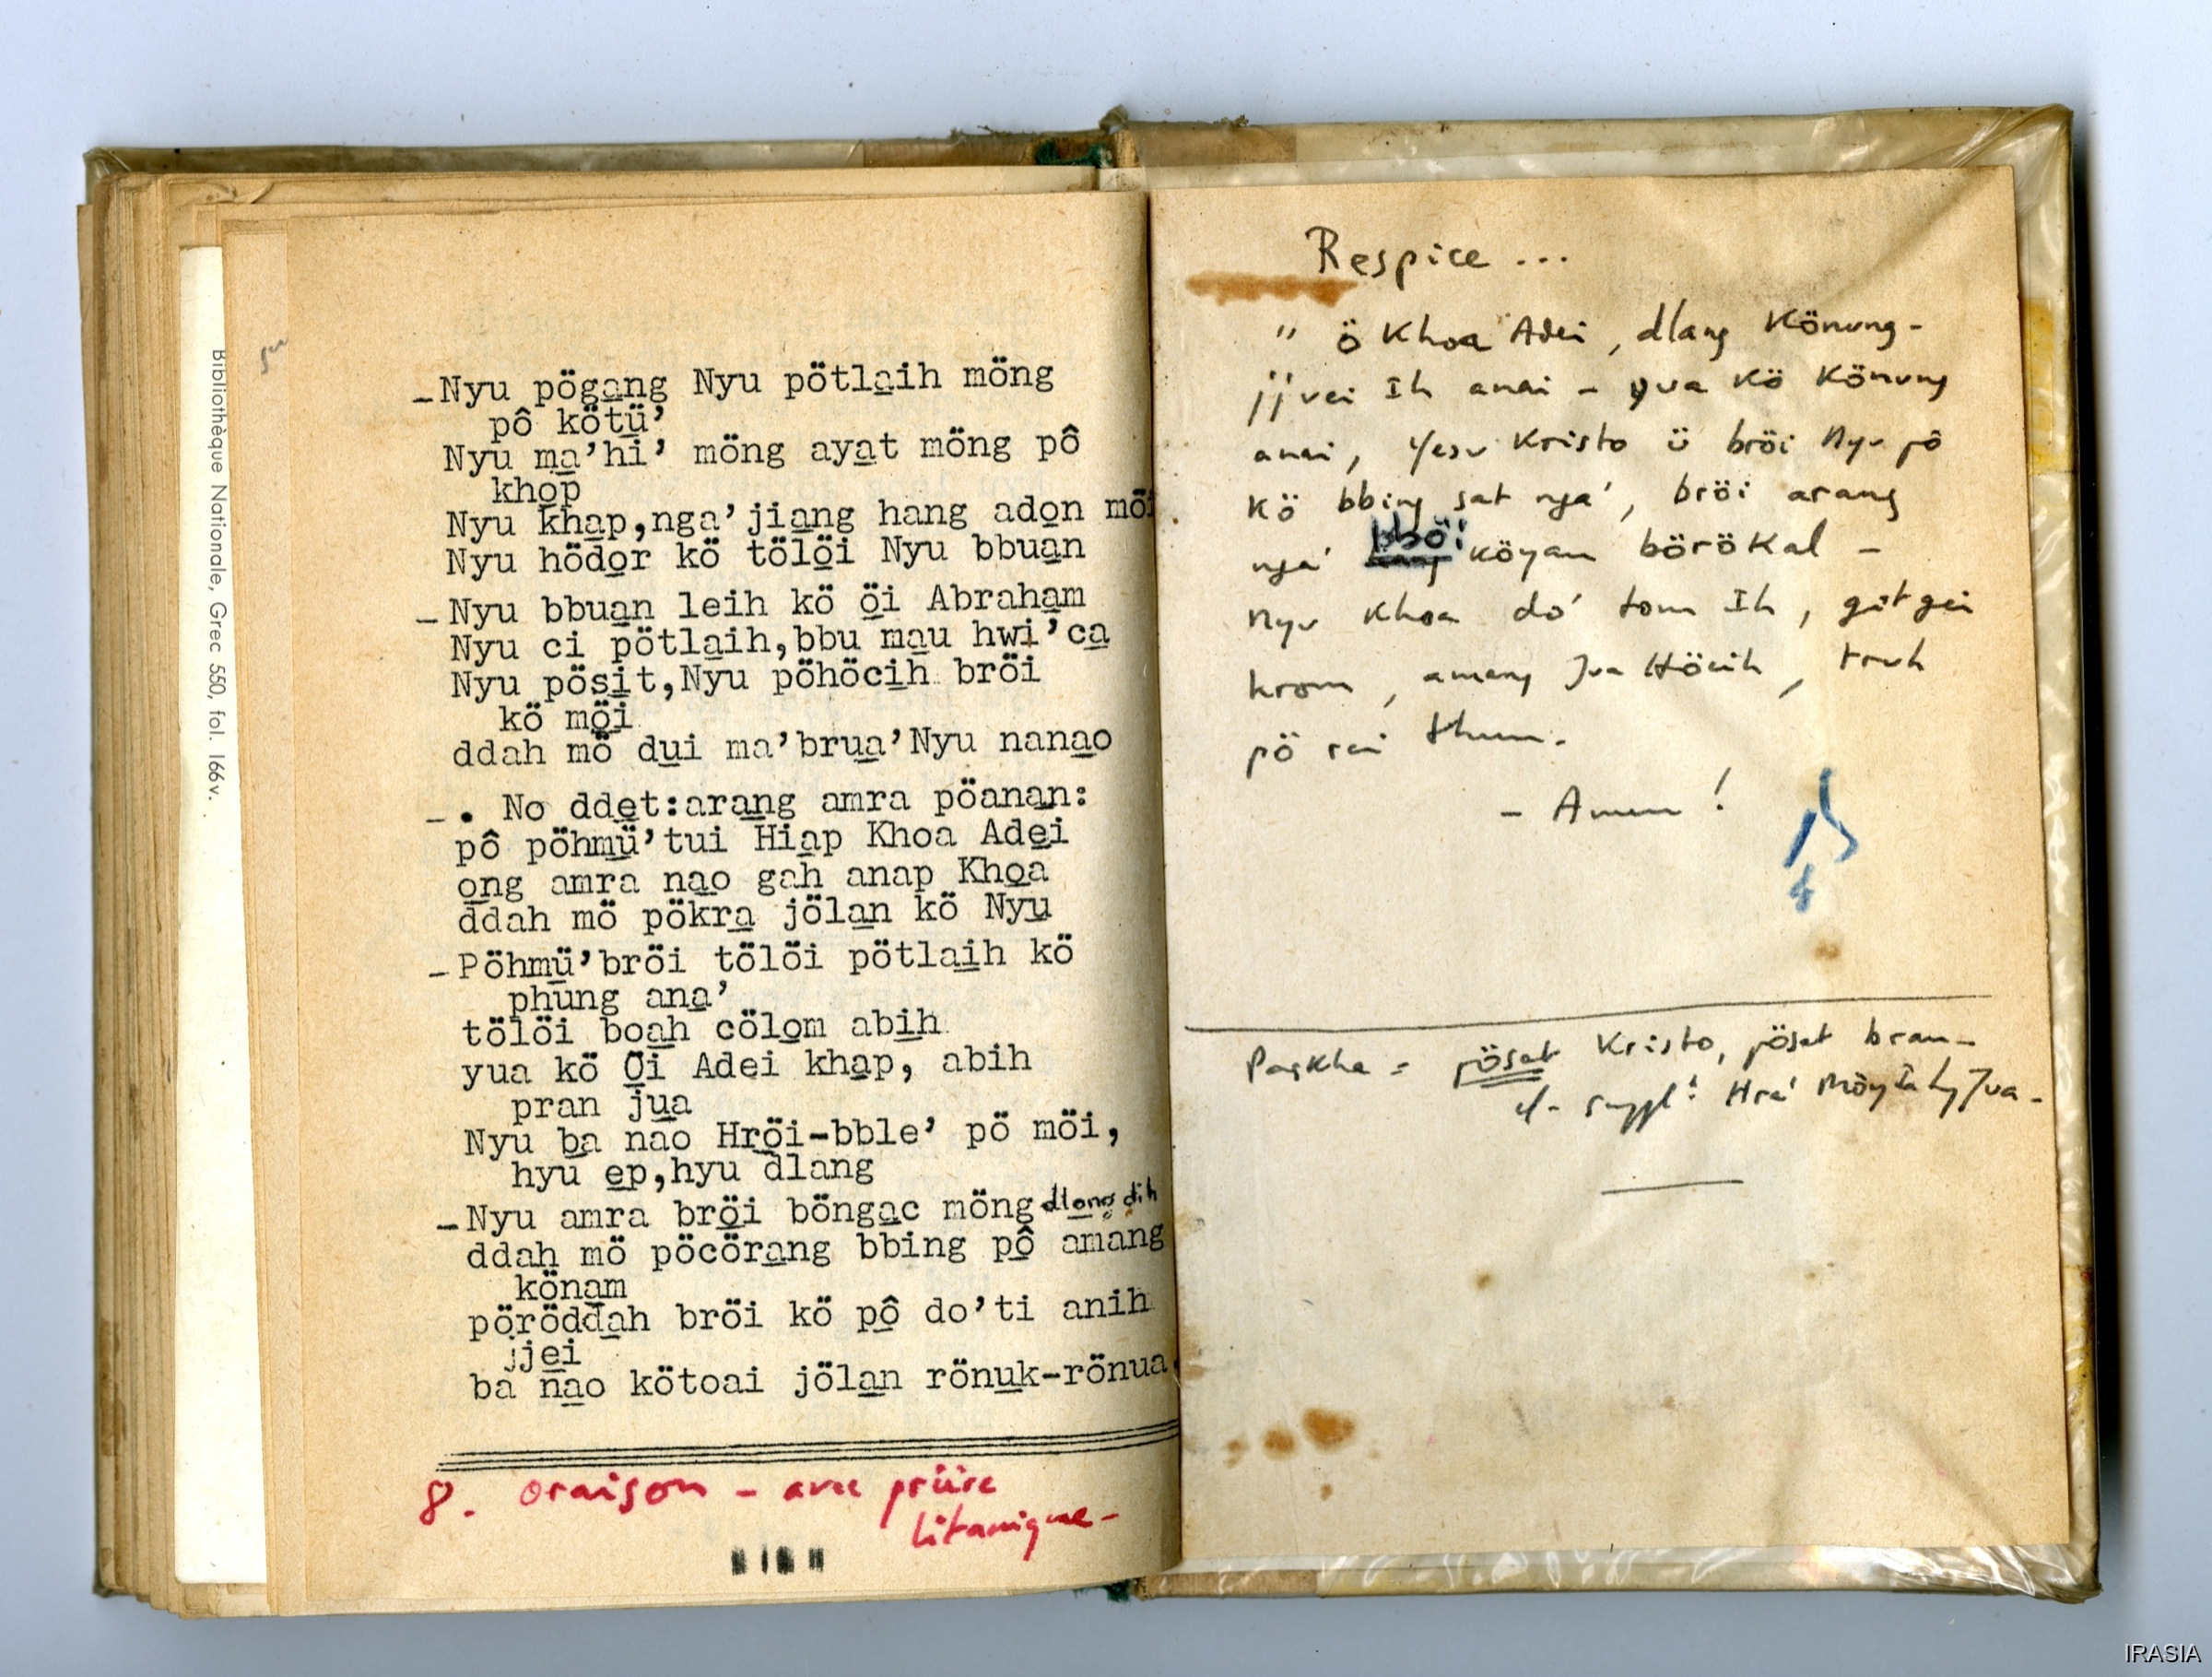 Bibliothèque Nationale, Grec 550, fol. 166v.
_Nyu pögang Nyu pötlaih möng
pô kötü’
Nyu ma’hi’ möng ayat möng pô
khop
Nyu khap,nga’jiang hang adon möi
Nyu hödor kö tölöi Nyu bbuan
_Nyu bbuan leih kö öi Abraham
Nyu ci pötlaih,bbu mau hwi’ca
Nyu pösit,Nyu pöhöcih bröi
kö möi
ddah mö dui ma’brua’Nyu nanao
_. No ddet:arang amra pöanan:
pô pöhmü’tui Hiap Khoa Adei
ong amra nao gah anap Khoa
ddah mö pökra jölan kö Nyu
_Pöhmü’bröi tölöi pötlaih kö
phung ana’
tölöi boah cölom abih
yua kö Öi Adei khap, abih
pran jua
Nyu ba nao Hröi-bble’ pö möi,
hyu ep,hyu dlang
_Nyu amra bröi böngac möng dlong dih
ddah mö pöcörang bbing pô amang
könam
pöröddah bröi kö pô do’ti anih
jjei
ba nao kötoai jölan rönuk-rönua
8. oraison - avec prière
litanique-
Respice ...
" Ö Khoa Adei, dlang Könung-
jjvei Ih anai - yua kö Könung
anai, Yesu Kristo ü bröi Nyu pô
kö bbing sat nga', bröi arang
nga' bböi köyau börökal -
Nyu Khoa dö' tom Ih, gitgei
hrom, amang Jua Höcih, truh
pö rai thun.
- Amen !
Paskha = pösat Kristo, pösat bran-
cf. suppl: Hra' Möyang Jua -
IRASIA